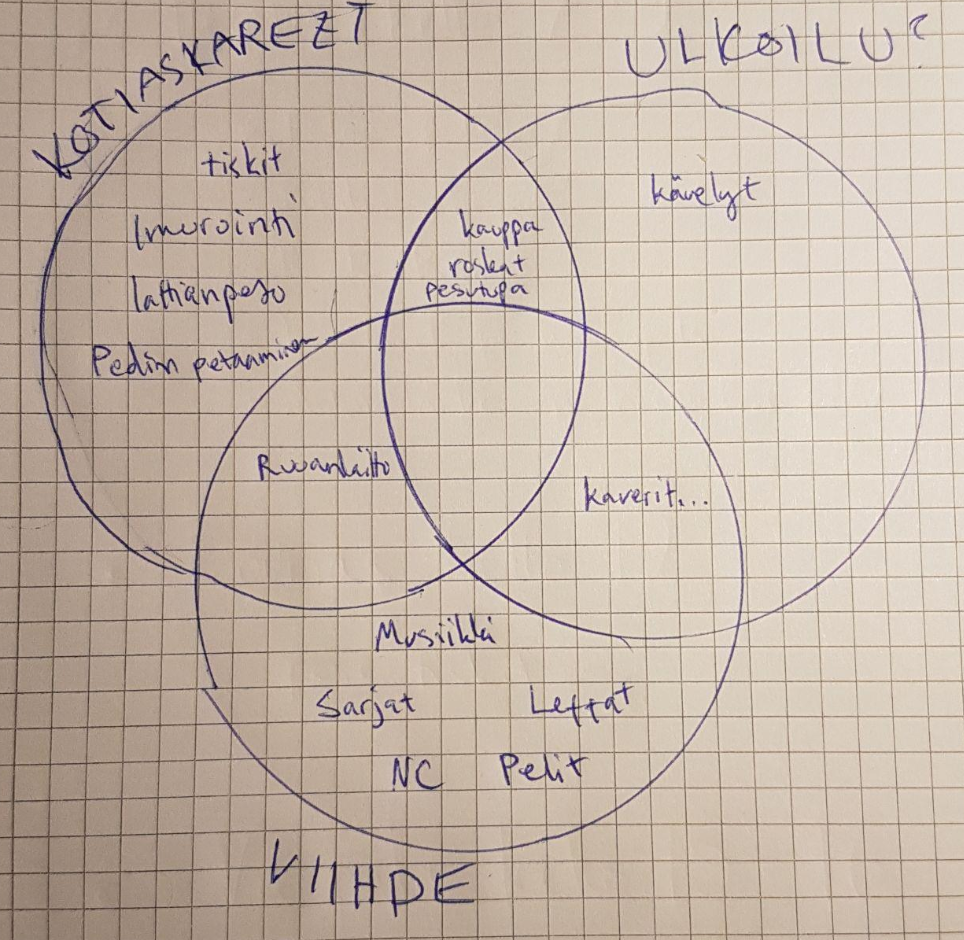 KOTIASKAREZT
ULKOILU?
tiskit
Imurointi
lattianpesu
Pedin petaaminen
kauppa
roskat
pesutupa
kävelyt
Ruuanlaitto
kaverit...
Musiikki
Sarjat
Leffat
NC
Pelit
VIIHDE